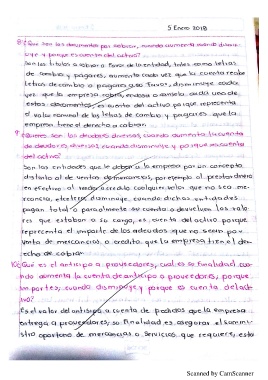 5 Enero 2018
8¿Que son los documentos por cobrar, cuando aumenta cuando disminu-
ye y porque es cuenta del activo?
Son los titulos a cobrar a favor de la entidad, tales como letras
de cambio y pagares, aumenta cada vez que la cuenta recibe
letras de cambio o pagares a su favor, disminuye cada
vez que la empresa cobra, endosa o cancela cada uno de
estos documentos, es cuenta del activo porque representa
el valor nominal de las letras de cambio y pagares que la
empresa tiene el derecho a cobrar.
9¿Quienes son los deudores diversos, cuando aumenta su cuenta
de deudores diversos, cuando disminuye y porque es cuenta
del activo?
Son las entidades que le deben a la empresa por un concepto
distinto al de ventas de mercancias, por ejemplo al prestar dinero
en efectivo al vender a credito cualquier valor que no sea me-
rcancia, etcetera, disminuye, cuando dichas entidades
pagan total o parcialmente su cuenta o devuelven los valo-
res que estaban a su cargo, es cuenta del activo porque
representa el importe de los adeudos que no sean por
venta de mercancias a credito que la empresa tiene el de-
recho de cobrar
10¿Qué es el anticipo a proveedores, cual es su finalidad cuan-
do aumenta la cuenta de anticipo a proveedores, porque
importes, cuando disminuye y porque es cuenta del ac
tivo?
Es el valor del anticipo a cuenta de pedidos que la empresa
entrega a proveedores, su finalidad es asegurar el sumini-
stro oportuno de mercancias o servicios que requiere, esta
Scanned by CamScanner